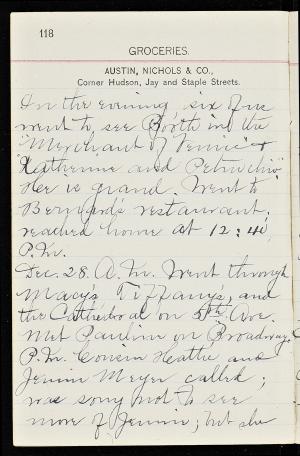 118
GROCERIES.
AUSTIN, NICHOLS & CO.,
Corner Hudson, Jay and Staple Streets.
In the evening six of us
went to see Booth in the
"Merchant of Venice" &
"Katherine and Petruchio"
He is grand. Went to
Bernard's restaurant;
reached home at 12:40
P.M.
Dec. 28. A.M. Went through
Macy's, Tiffany's, and
the Cathedral on 5th Ave.
Met Pauline on Broadway.
P.M. Cousin Hattie and
Jennie Meyer called;
was sorry not to see
more of Jennie; but she